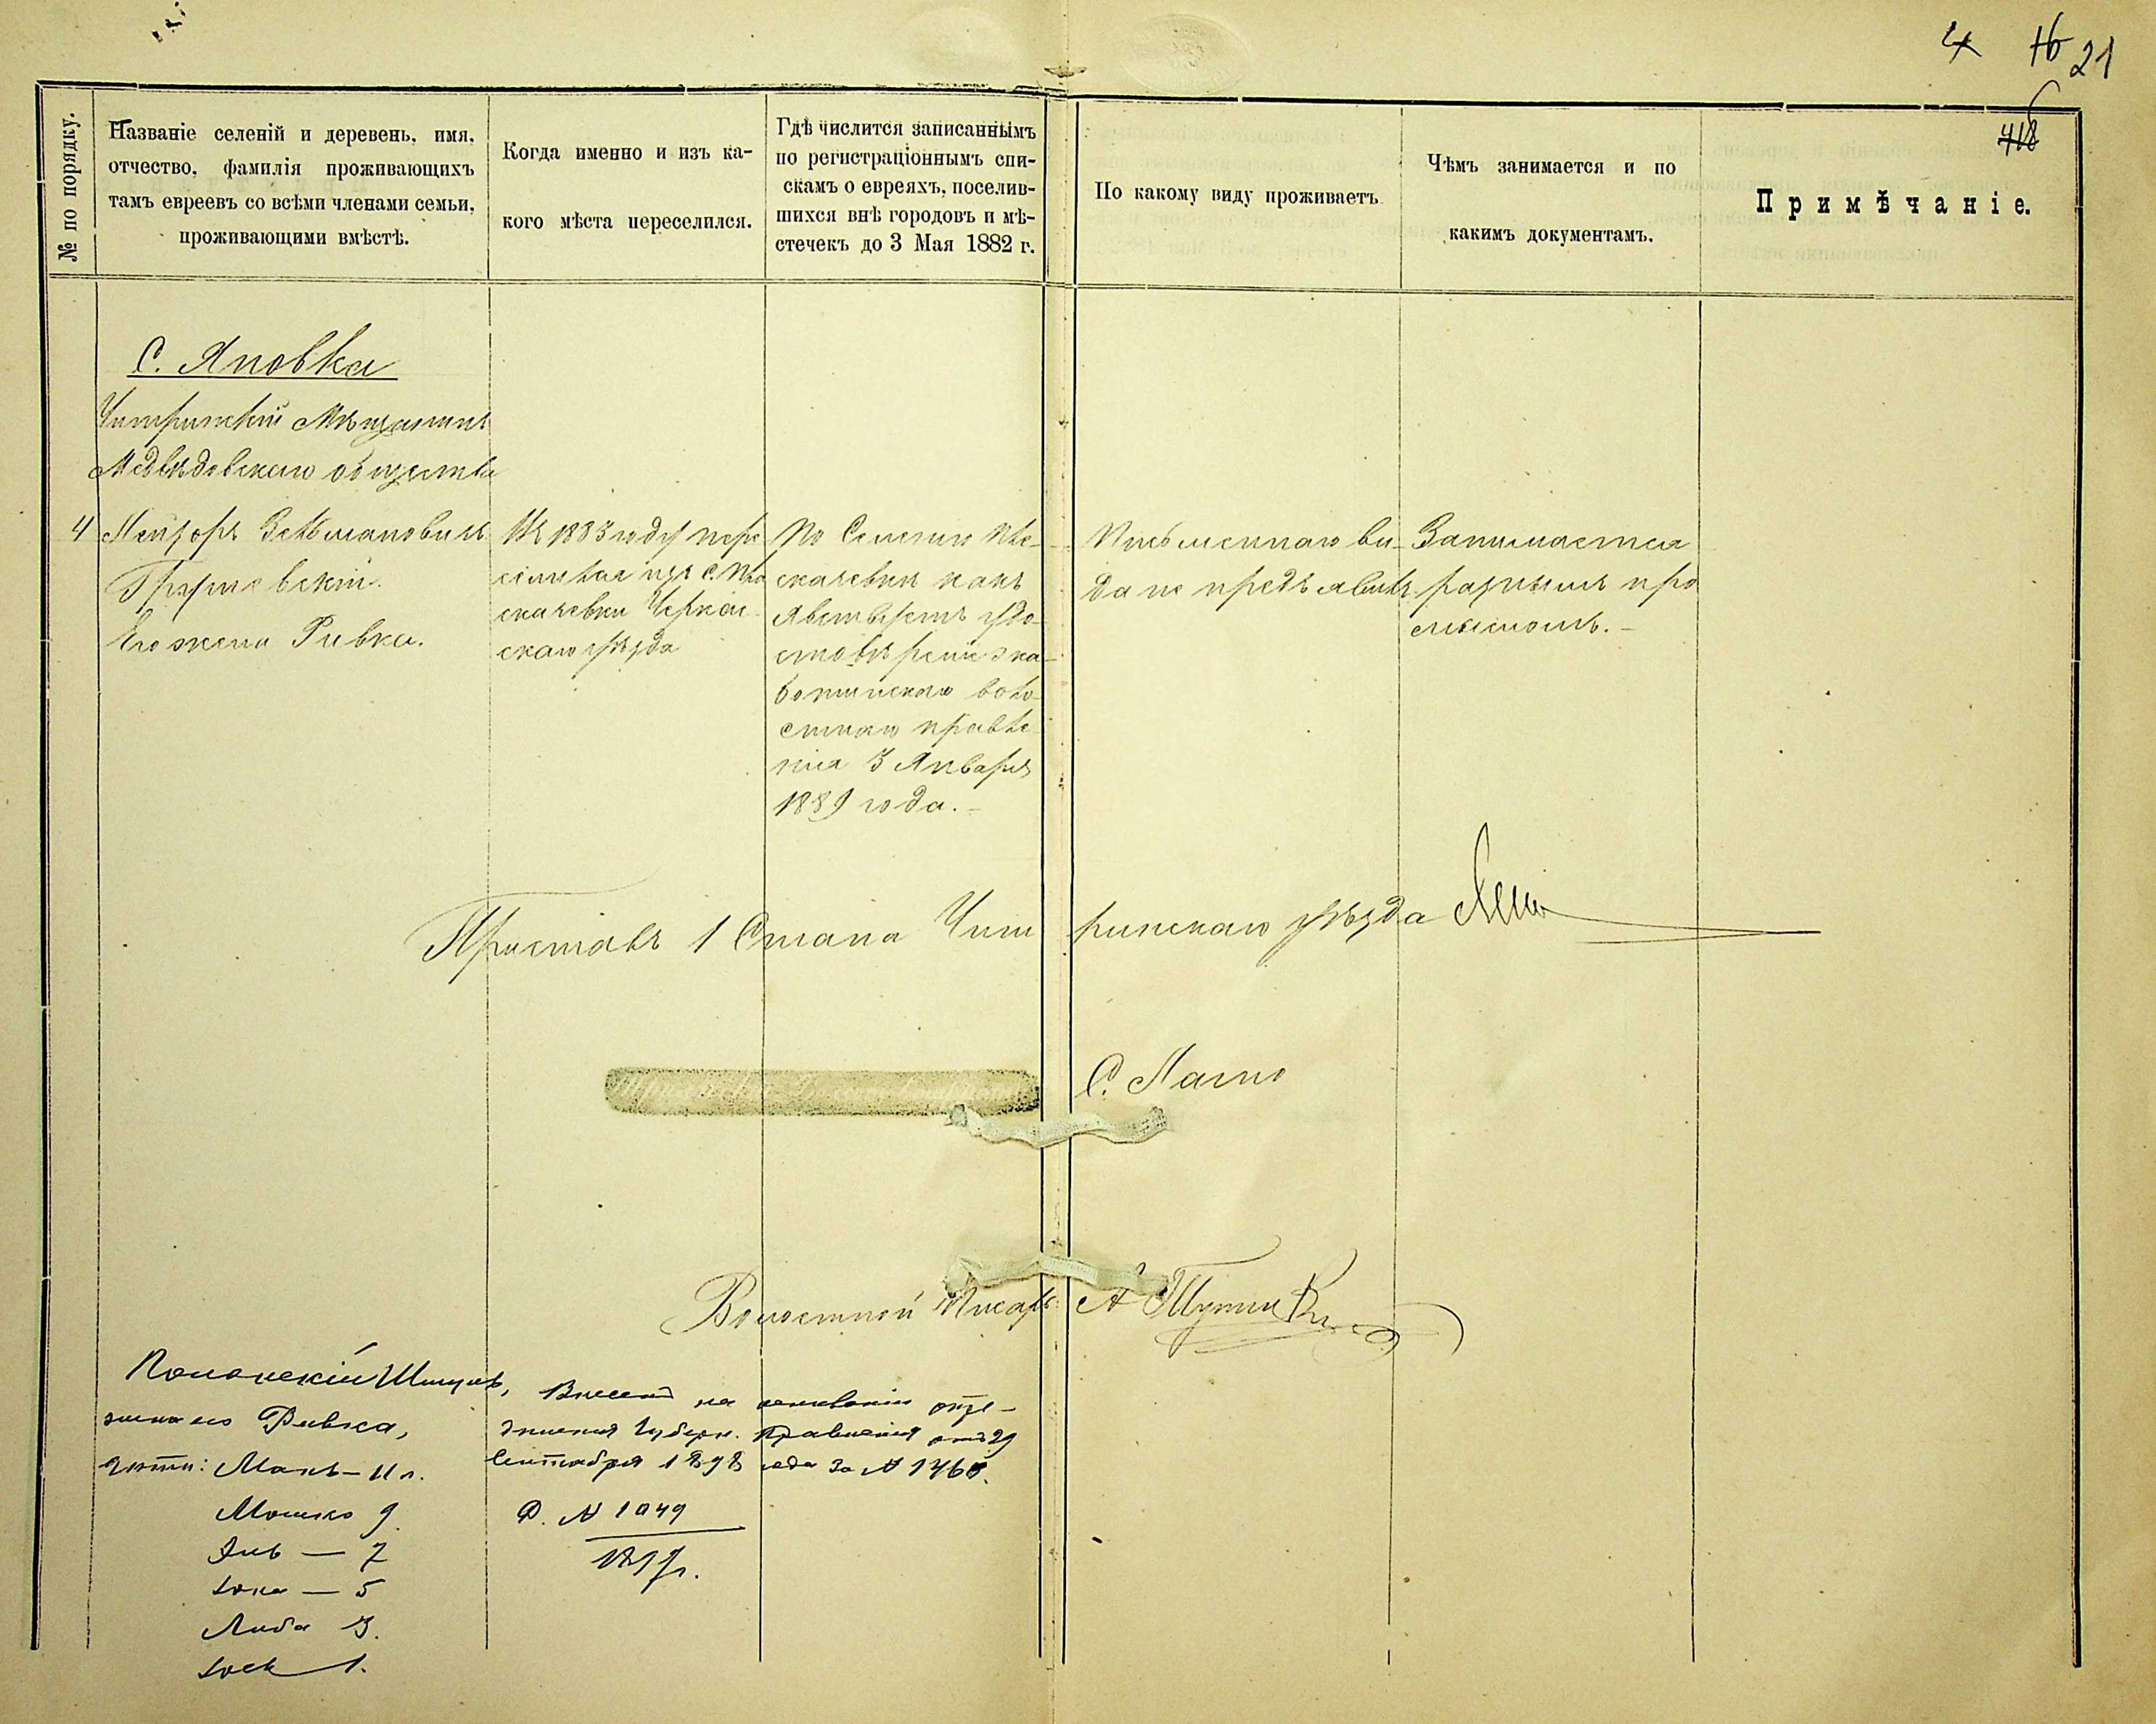 4 16 21
418
№ по порядку.
Названіе селеній и деревень, имя,
отчество, фамилія проживающихъ
тамъ евреевъ со всѣми членами семьи,
проживающими вмѣстѣ.
Когда именно и изъ ка-
кого мѣста переселился.
Гдѣ числится записаннымъ
по регистраціоннымъ спи-
скамъ о евреяхъ, поселив-
шихся внѣ городовъ и мѣ-
стечекъ до 3 Мая 1882 г.
По какому виду проживаетъ
Чѣмъ занимается и по
какимъ документамъ.
Примѣчаніе.
С. Яновка
Чигиринскій Мѣщанинъ
Медвѣдовскаго общества
4
Зельмановичъ
Его жена Ривка.
Въ 1883 году пере
селился изъ с. Пле
скачевки Черкас
скаго уѣзда
По Селенію Пле-
скачевки какъ
явствуетъ удо-
стовѣреніе зла-
волостного правле
нія 3 Января
1889 года.
Письменнаго ви-
да не предъявилъ
Занимается
разнымъ про
мысломъ.
Приставъ 1 Стана Чиги ринскаго уѣзда
С.
Волостной Писарь А
Полонскій Шмуль,
жена его Ривка,
дѣти: Манъ - 11 л.
Мошко 9.
7
5
Либа 3.
1.
Внесенъ на основаніи опре-
дѣленія Губерн. Правленія отъ 29
Сентября 1898 года за № 1460.
Д. № 1049
1897 г.